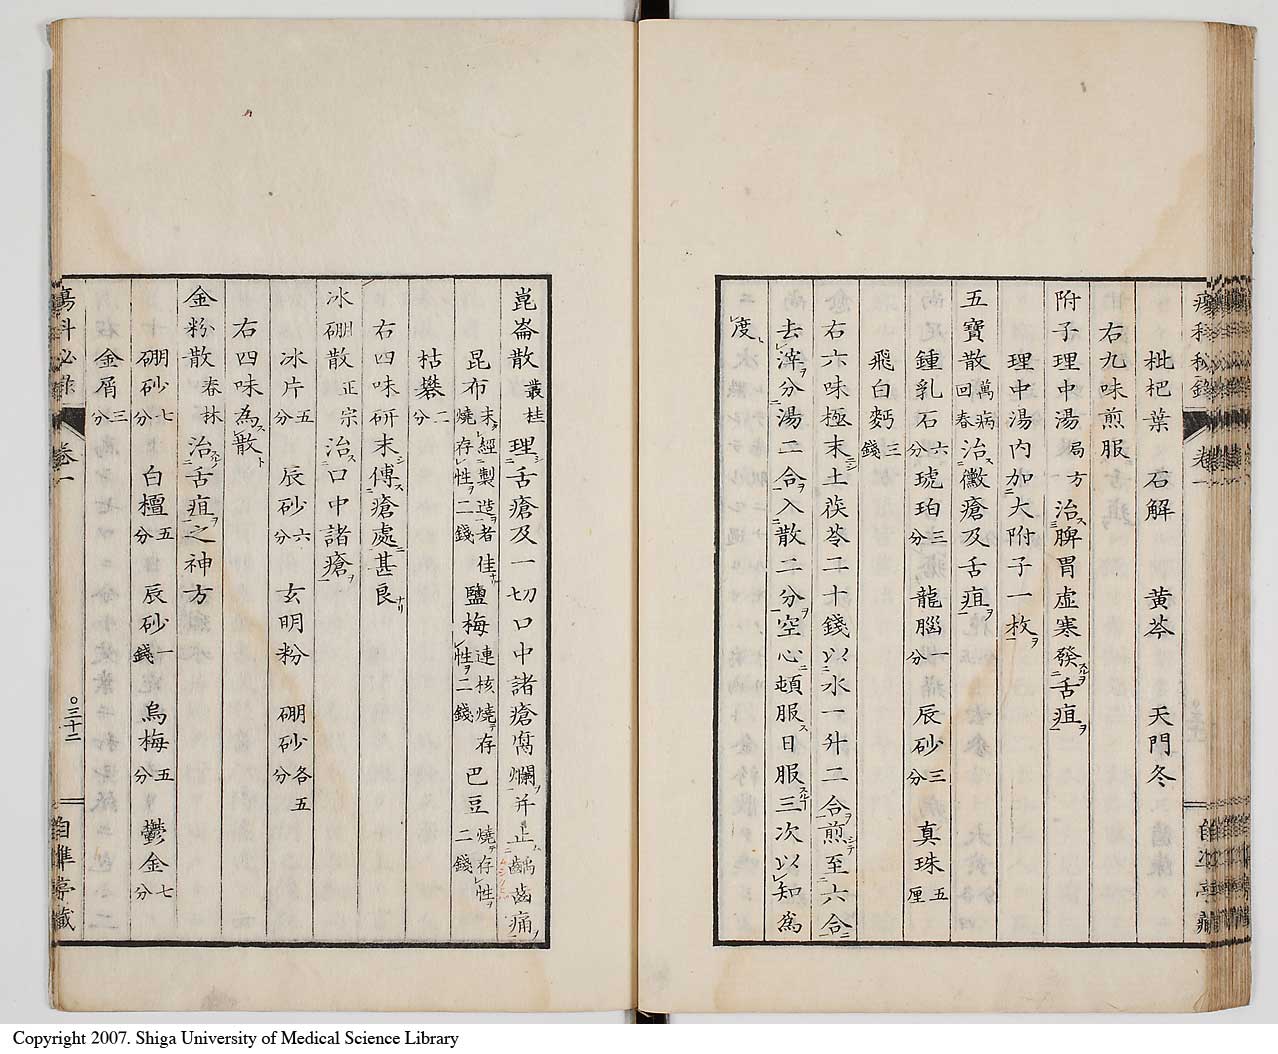 枇杷葉 石解 黄芩 天門冬
右九味煎服
附子理中湯 局方 治脾胃虚寒發舌疽
理中湯内加大附子一枚
五寶散 萬病回春 治黴瘡及舌疽
鍾乳石 六分 琥珀 三分 龍腦 一分 辰砂 三分 真珠 五厘
飛白麪 三錢
右六味極末土茯苓二十錢以水一升二合煎至六合
去滓分湯二合入散二分空心頓服日服三次以知爲
度
崑崙散 叢桂 理舌瘡及一切口中諸瘡腐爛并止齲齒痛
昆布 末經製造者佳燒存性二錢 鹽梅 連核燒存性二錢 巴豆 燒存性二錢
枯礬 二分
右四味研末傅瘡處甚良
冰硼散 正宗 治口中諸瘡
冰片 五分 辰砂 六分 玄明粉 硼砂 各五分
右四味為散
金粉散 春林 治舌疽之神方
硼砂 七分 白檀 五分 辰砂 一錢 烏梅 五分 鬱金 七分
金屑 三分
卷一
三十二
Copyright 2007. Shiga University of Medical Science Library